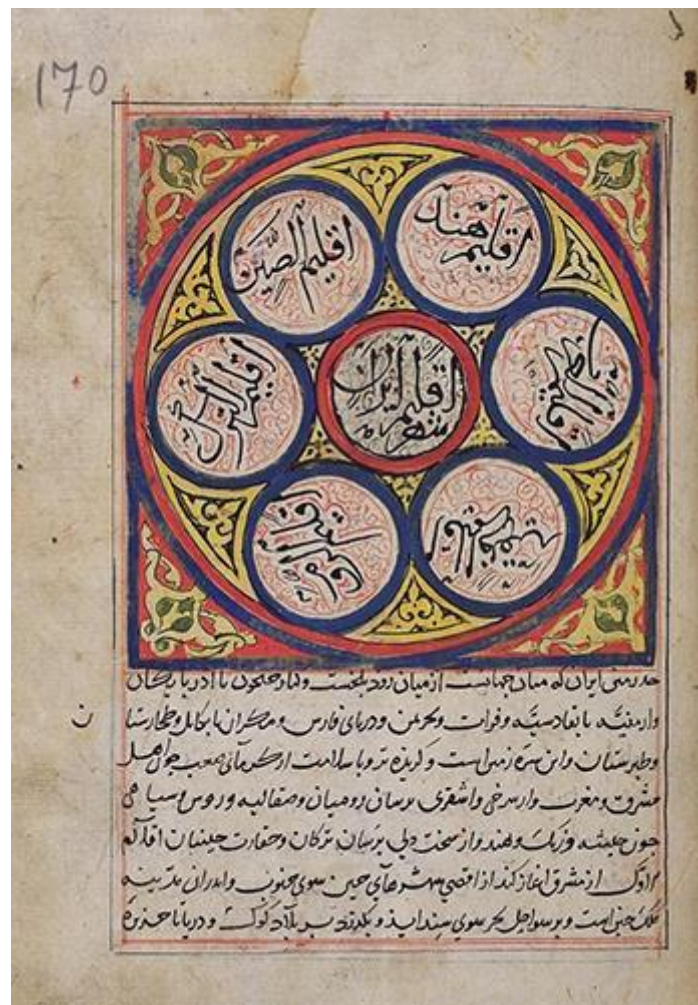 170
اقلیم هند
اقلیم الصین
اقلیم الترک
اقلیم ایران
شهر
حد زمین ایران که میان جهانست از میان رود بلخست و کنار جیحون تا آذربایگان
وارمنیّه تا بقادسیّه و فرات و بحر یمن و دریای فارس و مکران تا بکابل و طخارستا
ن
وطبرستان واین سرّه زمین است و گزیده تر و با سلامت از گرمائی صعب چون اهل
مشرق ومغرب وازسرخی واشقری برسان رومیان وصقالبه وروس وسیاهی
چون حبشه وزنک وهند واز سخت دلی برسان ترکان وحقارت چینیان اقلیم
اول از مشرق آغاز کند از اقصی شهرهای چین سوی جنوب واندران مدینه
ملک چین است وبر سواحل بحر سوی سند آید وبگذرد بر بلاد کوک ودریا تا جزیره